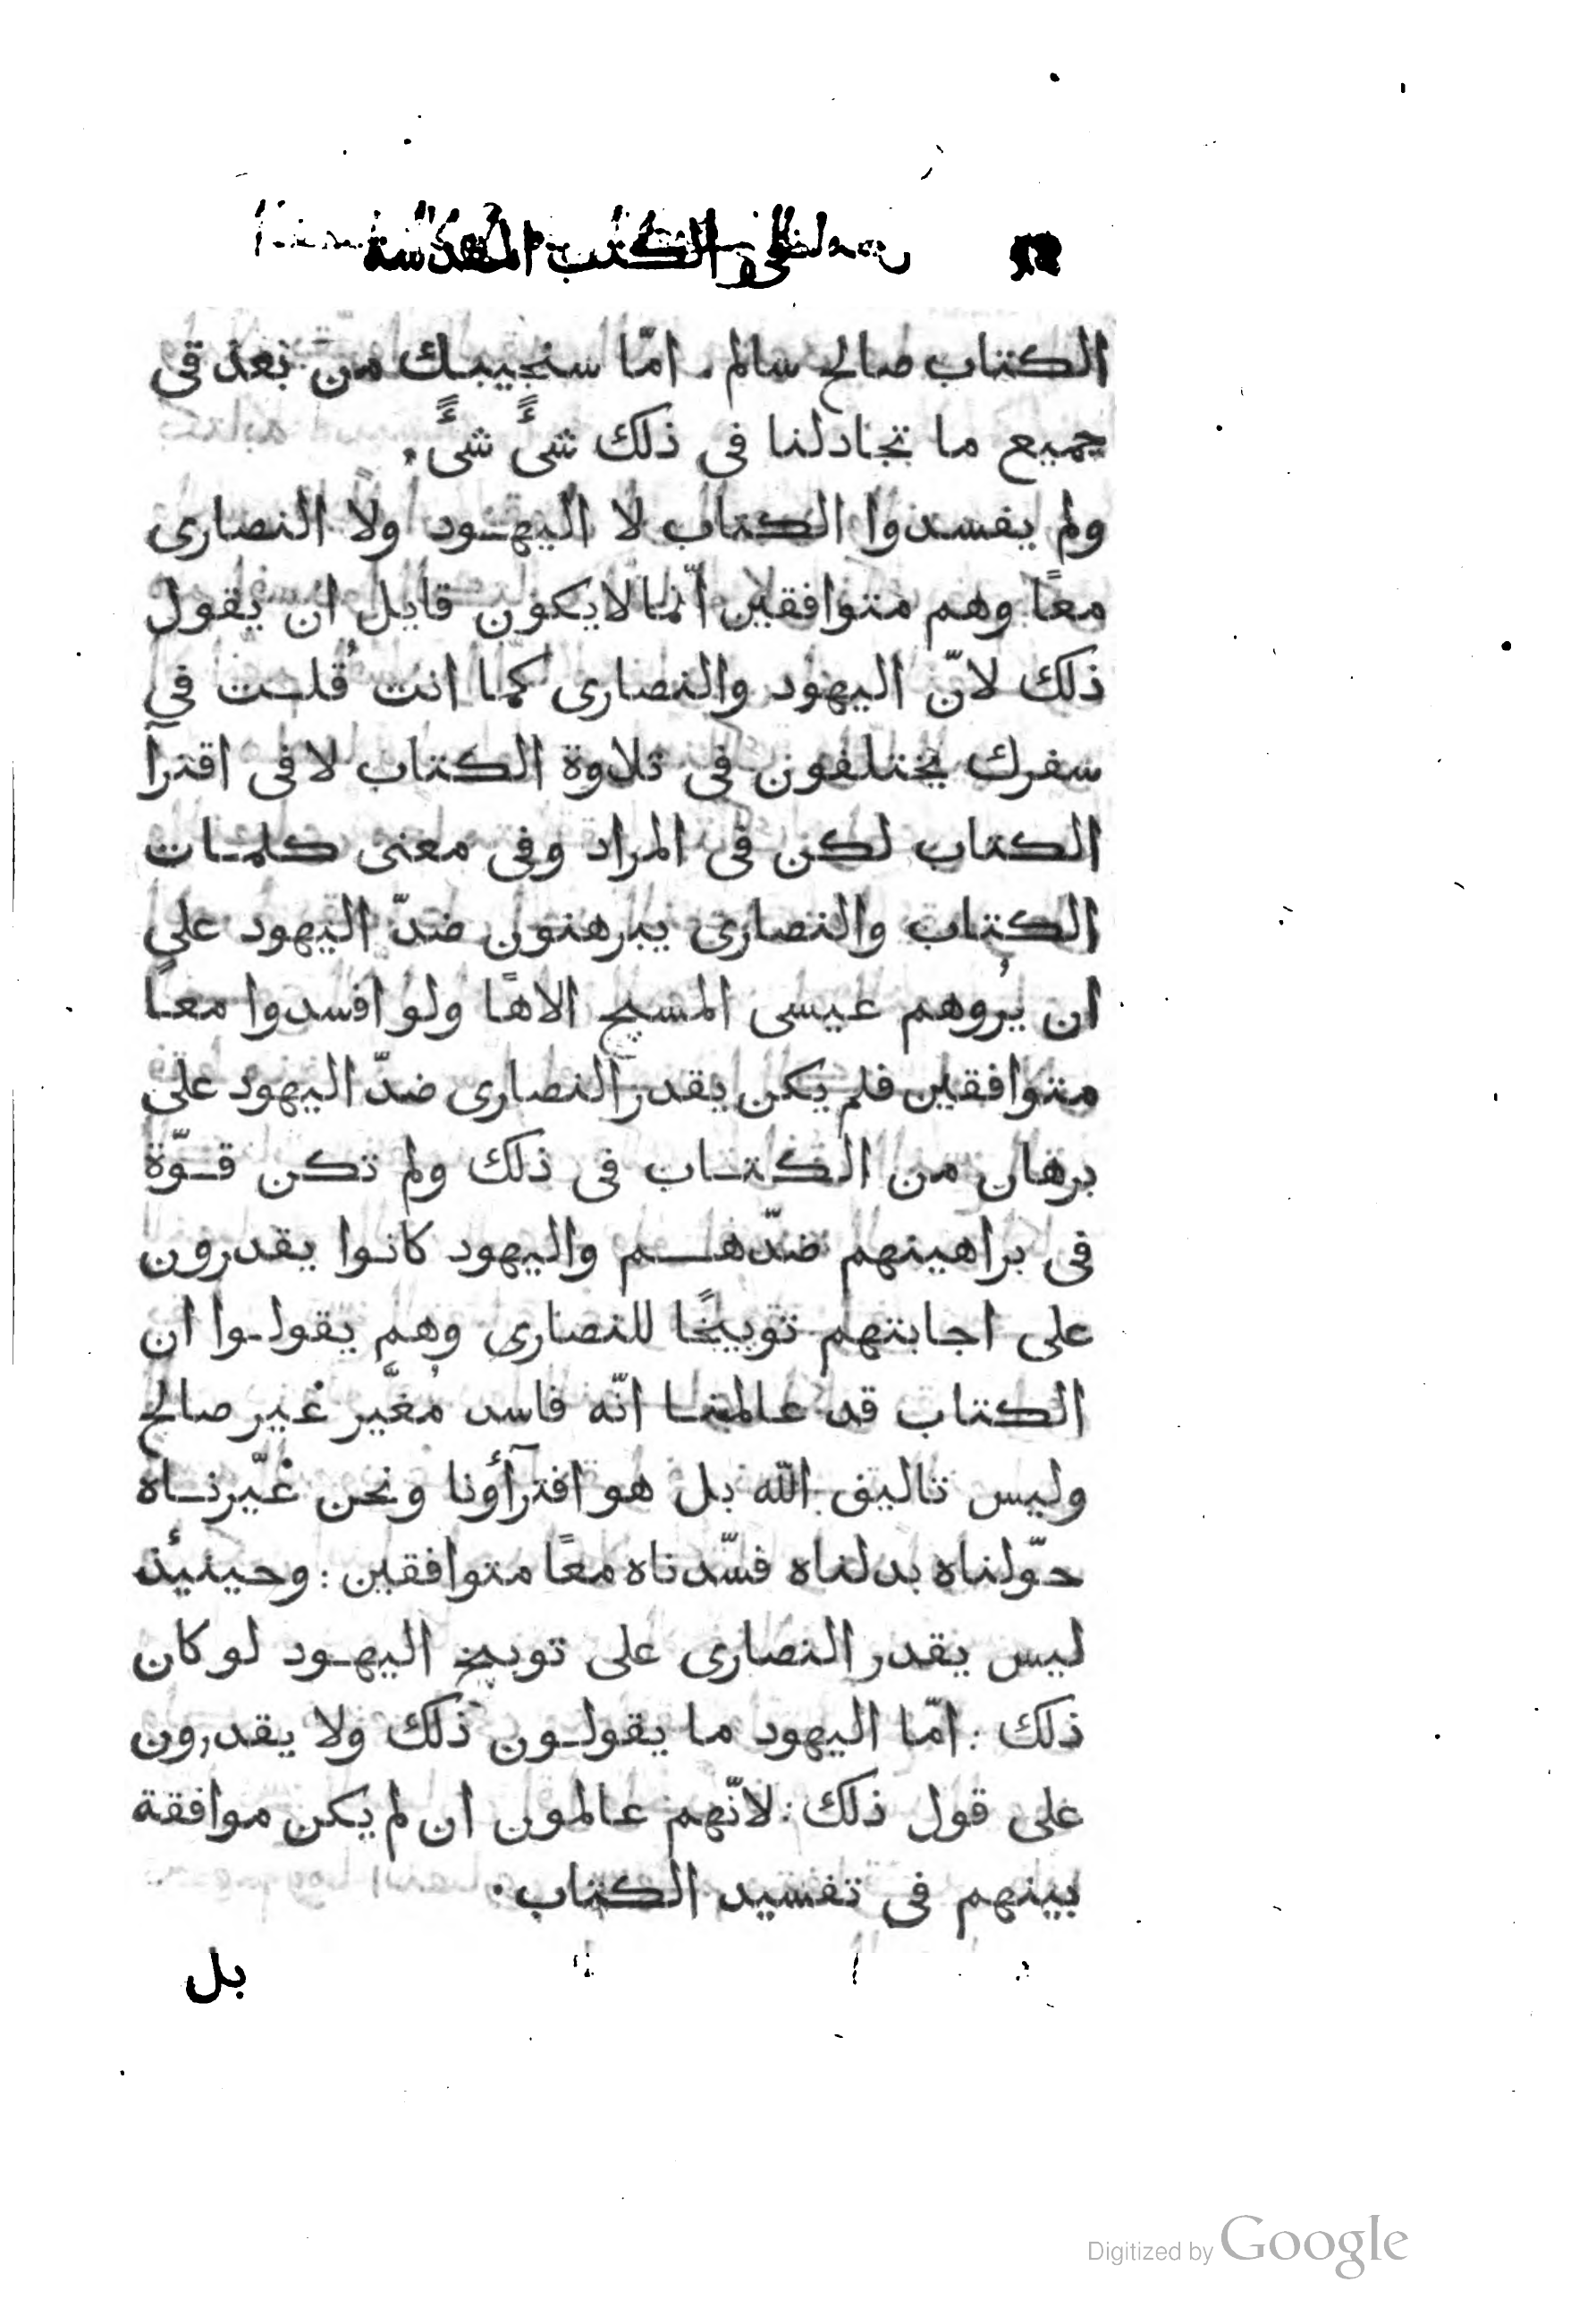 الكتب المقدسة
الكتاب صالح سالم . امّا سنجيبك من بعد فى
جميع ما تجادلنا فى ذلك شىءً شىءً .
ولم يفسدوا الكتاب لا اليهود ولا النصارى
معًا وهم متوافقين انّما لا يكون قايل ان يقول
ذلك لانّ اليهود والنصارى كما انت قُلت في
سفرك يختلفون فى تلاوة الكتاب لا فى اقترآ
الكتاب لكن فى المراد وفى معنى كلمات
الكتاب والنصارى يبرهنون ضدّ اليهود علي
ان يُروهم عيسى المسيح الاهًا ولو افسدوا معًا
متوافقين فلم يكن يقدر النصارى ضدّ اليهود على
برهان من الكتاب فى ذلك ولم تكن قوّة
فى براهينهم ضدّهم واليهود كانوا يقدرون
على اجابتهم توبيخًا للنصارى وهم يقولوا ان
الكتاب قد عالمنا انّه فاسد مُغيَّر غير صالح
وليس تاليف الله بل هو افترآؤنا ونحن غيّرناه
حوّلناه بدلناه فسّدناه معًا متوافقين : وحينيئذ
ليس يقدر النصارى على توبيخ اليهود لو كان
ذلك : امّا اليهود ما يقولون ذلك ولا يقدرون
على قول ذلك : لانّهم عالمون ان لم يكن موافقة
بينهم فى تفسيد الكتاب .
بل
Digitized by Google